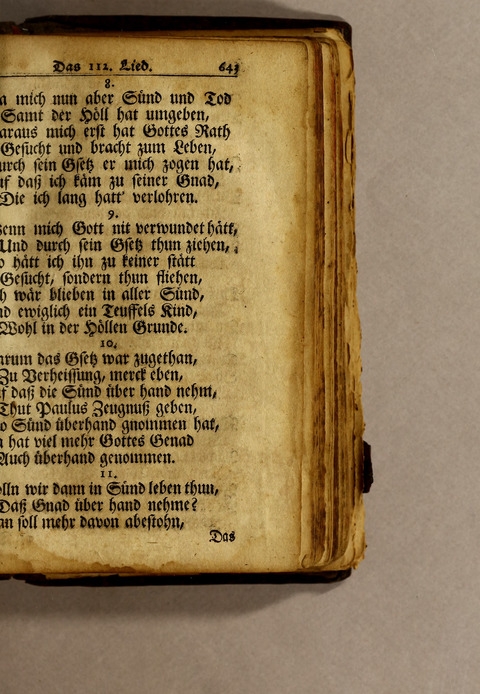 Das 112. Lied. 643
8.
a mich nun aber Sünd und Tod
Samt der Höll hat umgeben,
araus mich erst hat Gottes Rath
Gesucht und bracht zum Leben,
urch sein Gsetz er mich zogen hat,
uf daß ich käm zu seiner Gnad,
Die ich lang hatt' verlohren.
9.
enn mich Gott nit verwundet hätt,
Und durch sein Gsetz thun ziehen,
o hätt ich ihn zu keiner stätt
Gesucht, sondern thun fliehen,
ch wär blieben in aller Sünd,
nd ewiglich ein Teuffels Kind,
Wohl in der Höllen Grunde.
10.
arum das Gsetz war zugethan,
Zu Verheissung, merck eben,
f daß die Sünd über hand nehm,
Thut Paulus Zeugnuß geben,
o Sünd überhand gnommen hat,
a hat viel mehr Gottes Genad
Auch überhand genommen.
11.
olln wir dann in Sünd leben thun,
Daß Gnad über hand nehme?
an soll mehr davon abestohn,
Das